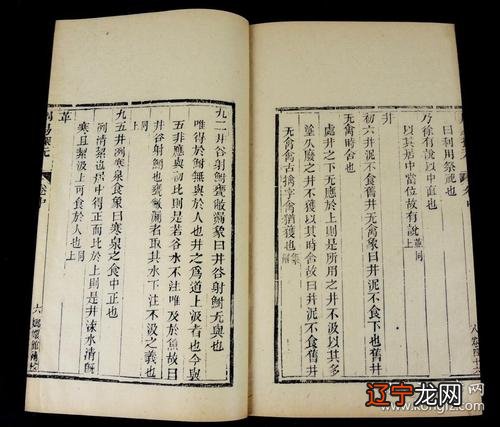 曰利用祭祀也
乃徐有說以中直也
以其居中當位故有說上同
井
初六井泥不食舊井无禽象曰井泥不食下也舊井
无禽時舍也
處井之下无應於上則是所用之井不汲以其多
塗久廢之井不獲以其時舍故曰井泥不食舊井
无禽禽古擒字禽猶獲也集解
九二井谷射鮒甕敝漏象曰井谷射鮒无與也
唯得於鮒无與於人也井之爲道上汲者也今與
五非應與初比則是若谷水不注唯及於魚故曰
井谷射鮒也甕敝漏者取其水下注不汲之義也
上同
九五井洌寒泉食象曰寒泉之食中正也
洌清絜也居中得正而比於上則是井渫水清既
寒且絜汲上可食於人也上同
革
周易探元 卷中
六 嫏嬛館補校
辽宁龙网